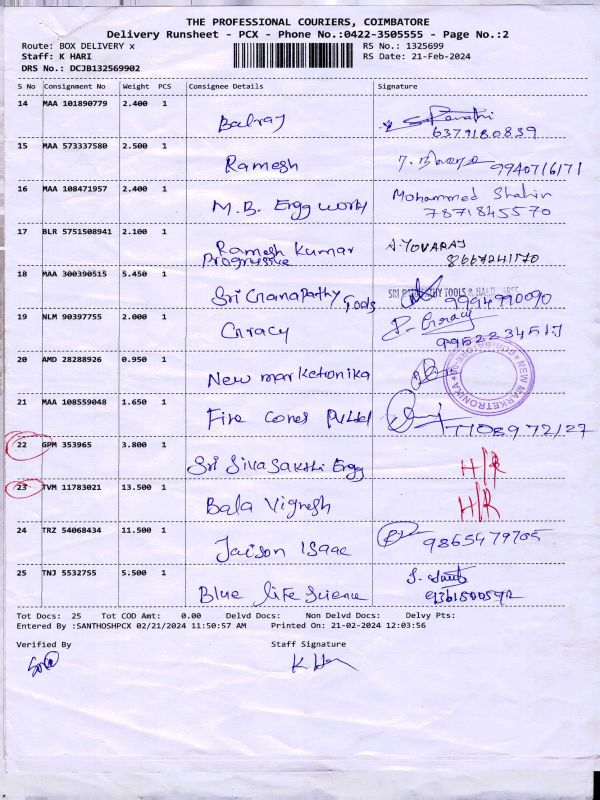 THE PROFESSIONAL COURIERS, COIMBATORE
Delivery Runsheet - PCX - Phone No.:0422-3505555 - Page No.:2
Route: BOX DELIVERY x RS No.: 1325699
Staff: K HARI RS Date: 21-Feb-2024
DRS No.: DCJB132569902
S No Consignment No Weight PCS Consignee Details Signature
14 MAA 101890779 2.400 1
Balraj
6379180839
15 MAA 573337580 2.500 1
Ramesh 9940716171
16 MAA 108471957 2.400 1 Mohammed Shahin
M.B. Engg works 7871845570
17 BLR 5751508941 2.100 1
Ramesh Kumar A.YOVARAJ
Progressive
18 MAA 300390515 5.450 1
Sri Ganapathy Tools 9994990090
19 NLM 90397755 2.000 1
Gracy P. Gracy
20 AMD 28288926 0.950 1
New marketonika NEW MARKETRONIKA
21 MAA 108559048 1.650 1
Fire Cones Pvt Ltd
22 GPM 353965 3.800 1
Sri Sivasakthi Engg H/R
23 TVM 11783021 13.500 1
Bala Vignesh H/R
24 TRZ 54068434 11.500 1
Jaison Isaac 9865479705
25 TNJ 5532755 5.500 1
Blue life Science
Tot Docs: 25 Tot COD Amt: 0.00 Delvd Docs: Non Delvd Docs: Delvy Pts:
Entered By :SANTHOSHPCX 02/21/2024 11:50:57 AM Printed On: 21-02-2024 12:03:56
Verified By Staff Signature